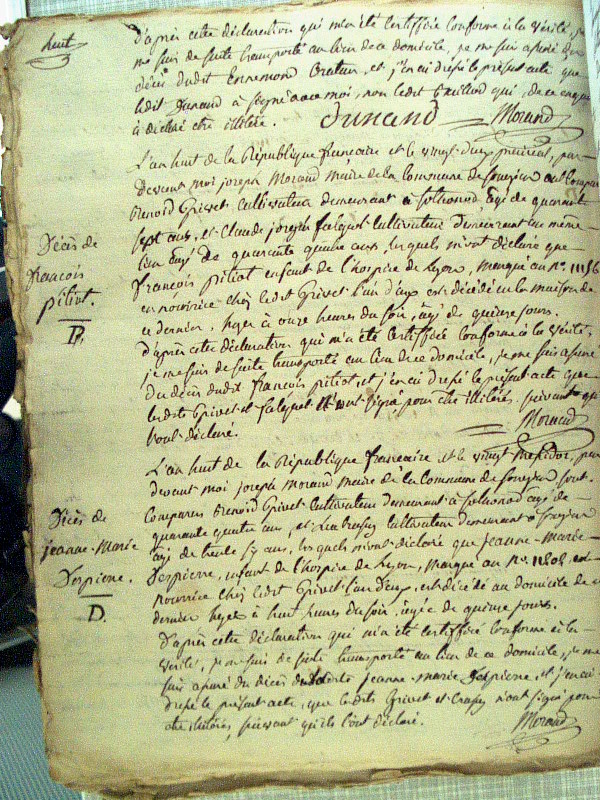 huit
D'après cette déclaration qui m'a été certifiée conforme à la vérité, je
me suis de suite transporté au lieu de ce domicile, je me suis assuré du
décès dudit Ennemond et j'en ai dressé le présent acte que
ledit Dunand à signé avec moi, non ledit qui, de ce enquis
à déclaré etre illiteré. Dunand Morand
L'an huit de la République française et le vingt deux prairial, par
devant moi joseph Morand maire de la Commune de ont comparu
Benoid Grivet Cultivateur demeurant à agé de quarante
sept ans, et Claude joseph falquet Cultivateur demeurant au même
lieu agé de quarante quatre ans, lesquels m'ont déclaré que
Décès de
françois
piliot.
D.
françois piliot enfant de l'hospice de Lyon, marqué au N°. 11156
en nourrice chez ledit Grivet l'un d'eux est décédé en la maison de
ce dernier hyer à onze heures du soir, agé de quinze jours.
D'après cette déclaration qui m'a été certifiée conforme à la vérité,
je me suis de suite transporté au lieu de ce domicile, je me suis assuré
du décès dudit françois piliot, et j'en ai dressé le présent acte que
lesdits Grivet et falquet n'ont signé pour etre illiterés, suivant qu'ils
l'ont déclaré. Morand
L'an huit de la République française et le vingt messidor, par
devant moi joseph morand maire de la Commune de sont
Comparus Benoid Grivet Cultivateur demeurant à agé de
Décès de
jeanne-Marie
Despierre.
D.
quarante quatre ans, et Cultivateur demeurant à
agé de trente six ans, lesquels m'ont déclaré que jeanne-Marie
Despierre, enfant de l'hospice de Lyon, marqué au N°. 11202, en
nourrice chez ledit Grivet l'un d'eux, est décédé au domicile de ce
dernier hyer à huit heures du soir, agée de quinze jours.
D'après cette déclaration qui m'a été certifiée conforme à la
vérité, je me suis de suite transporté au lieu de ce domicile, je me
suis assuré du décès de ladite jeanne-marie Despierre, et j'en ai
dressé le présent acte, que lesdits Grivet et n'ont signé pour
etre illiterés, suivant qu'ils l'ont déclaré. Morand